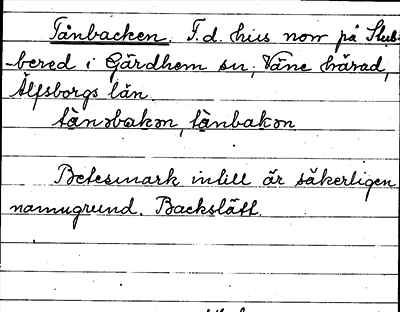 Tånbacken. F.d. hus norr på Stub-
-bered i Gärdhem sn, Väne härad,
Älfsborgs län.
tån⸱bakɔn, tånbakɔn
Betesmark intill är säkerligen
namngrund. Backslätt.